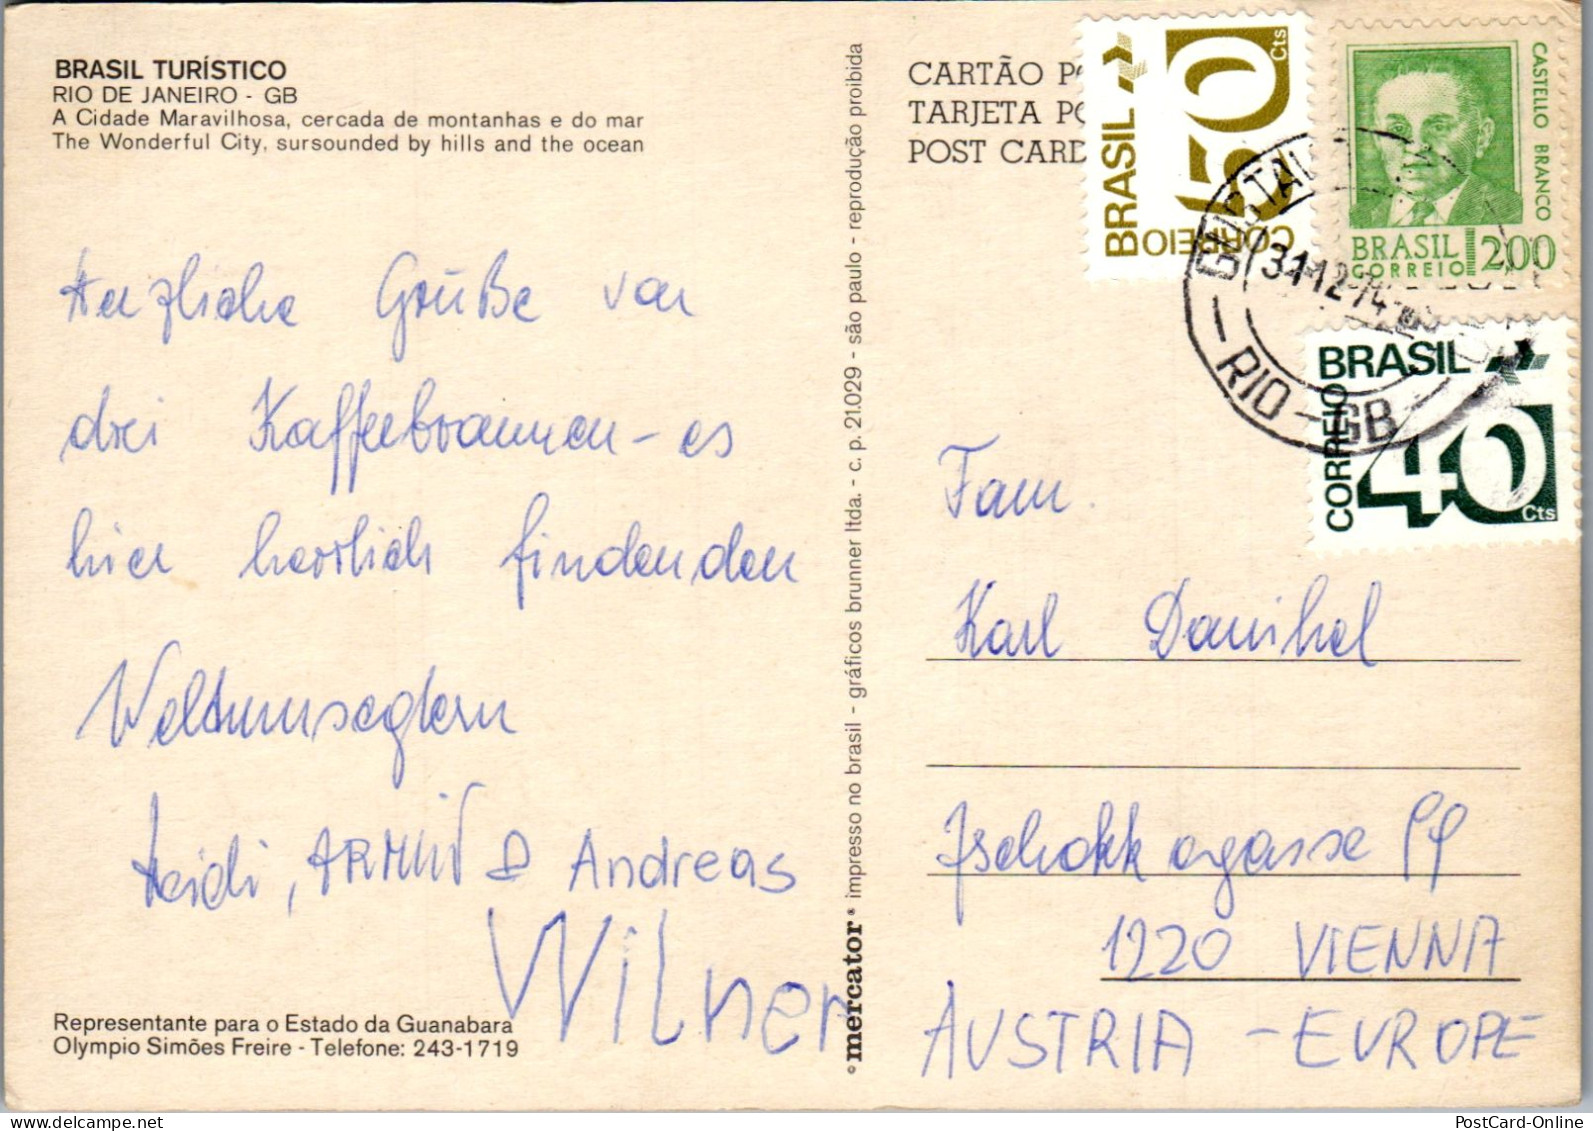 BRASIL TURÍSTICO
RIO DE JANEIRO - GB
A Cidade Maravilhosa, cercada de montanhas e do mar
The Wonderful City, sursounded by hills and the ocean
Herzliche Grüße von
drei Kaffeebraunen - es
hier herrlich findenden
Weltumseglern
Heidi, ARMIN & Andreas
Wilner
Representante para o Estado da Guanabara
Olympio Simões Freire - Telefone: 243-1719
°mercator® impresso no brasil - gráficos brunner ltda. - c. p. 21.029 - são paulo - reprodução proibida
CARTÃO PO
TARJETA PO
POST CARD
BRASIL
50 Cts
CORREIO
CASTELLO BRANCO
BRASIL 200
CORREIO
BRASIL
CORREIO
40 Cts
31.12.74
RIO - GB
Fam.
Karl Danihel
Zschokkegasse 99
1220 VIENNA
AUSTRIA - EUROPE
PostCard-Online